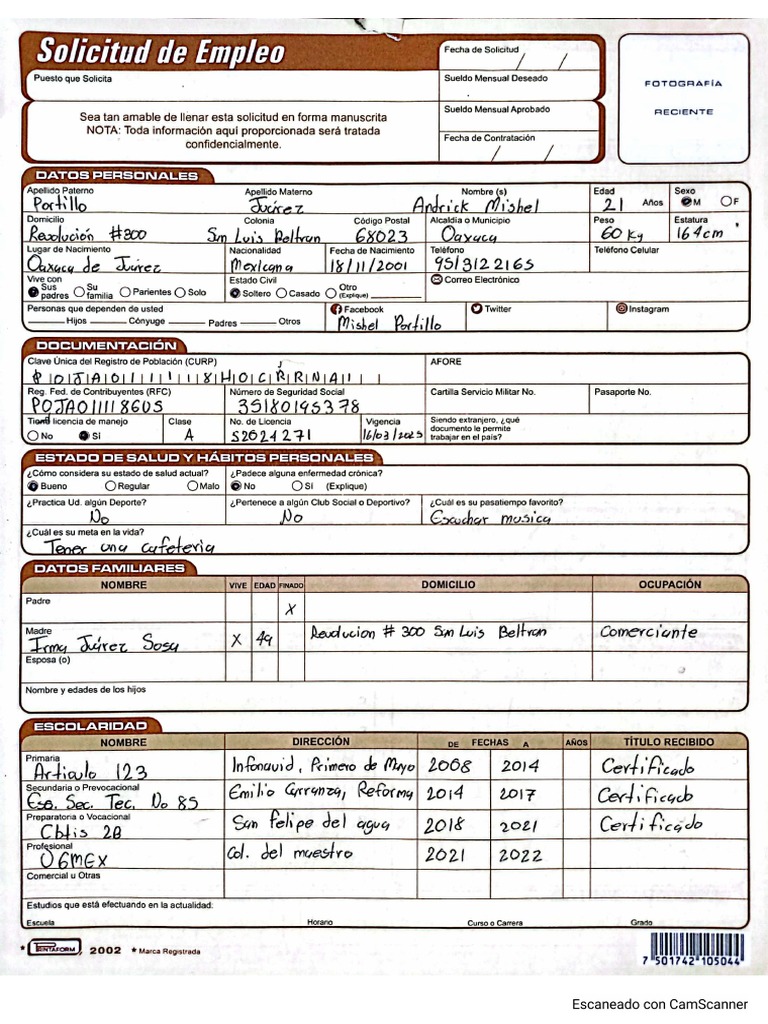 Solicitud de Empleo
Fecha de Solicitud
/ /
Puesto que Solicita
Sueldo Mensual Deseado
Sea tan amable de llenar esta solicitud en forma manuscrita
NOTA: Toda información aquí proporcionada será tratada
confidencialmente.
Sueldo Mensual Aprobado
Fecha de Contratación
/ /
FOTOGRAFÍA
RECIENTE
DATOS PERSONALES
Apellido Paterno Apellido Materno Nombre (s) Edad Sexo
Portillo Juárez Andrick Mishel 21 Años M F
Domicilio Colonia Código Postal Alcaldía o Municipio Peso Estatura
Revolución #300 Sm Luis Beltran 68023 Oaxaca 60 Kg 164cm
Lugar de Nacimiento Nacionalidad Fecha de Nacimiento Teléfono Teléfono Celular
Oaxaca de Juárez Mexicana 18/11/2001 9513122165
Vive con Estado Civil Correo Electrónico
Sus padres Su familia Parientes Solo Soltero Casado Otro (Explique)
Personas que dependen de usted Facebook Twitter Instagram
Hijos Cónyuge Padres Otros Mishel Portillo
DOCUMENTACIÓN
Clave Única del Registro de Población (CURP) AFORE
Reg. Fed. de Contribuyentes (RFC) Número de Seguridad Social Cartilla Servicio Militar No. Pasaporte No.
POJA011118GU5 35180195378
licencia de manejo Clase No. de Licencia Vigencia Siendo extranjero, ¿qué
documento le permite
trabajar en el país?
No Sí A S2024271 16/03/2025
ESTADO DE SALUD Y HÁBITOS PERSONALES
¿Cómo considera su estado de salud actual? ¿Padece alguna enfermedad crónica?
Bueno Regular Malo No Sí (Explique)
¿Practica Ud. algún Deporte? ¿Pertenece a algún Club Social o Deportivo? ¿Cuál es su pasatiempo favorito?
No No Escuchar musica
¿Cuál es su meta en la vida?
Tener una cafeteria
DATOS FAMILIARES
NOMBRE VIVE EDAD FINADO DOMICILIO OCUPACIÓN
Padre
X
Madre
Irma Juárez Sosa X 49 Revolucion # 300 Sm Luis Beltran Comerciante
Esposa (o)
Nombre y edades de los hijos
ESCOLARIDAD
NOMBRE DIRECCIÓN DE FECHAS A AÑOS TÍTULO RECIBIDO
Primaria
Articulo 123 Infonavid, Primero de Mayo 2008 2014 Certificado
Secundaria o Prevocacional
Esc. Sec. Tec. No 85 Emilio Carranza, Reforma 2014 2017 Certificado
Preparatoria o Vocacional
Cbtis 28 San felipe del agua 2018 2021 Certificado
Profesional
UGMEX Col. del maestro 2021 2022
Comercial u Otras
Estudios que está efectuando en la actualidad:
Escuela Horario Curso o Carrera Grado
* PENTAFORM, 2002 * Marca Registrada
7 501742 105044
Escaneado con CamScanner